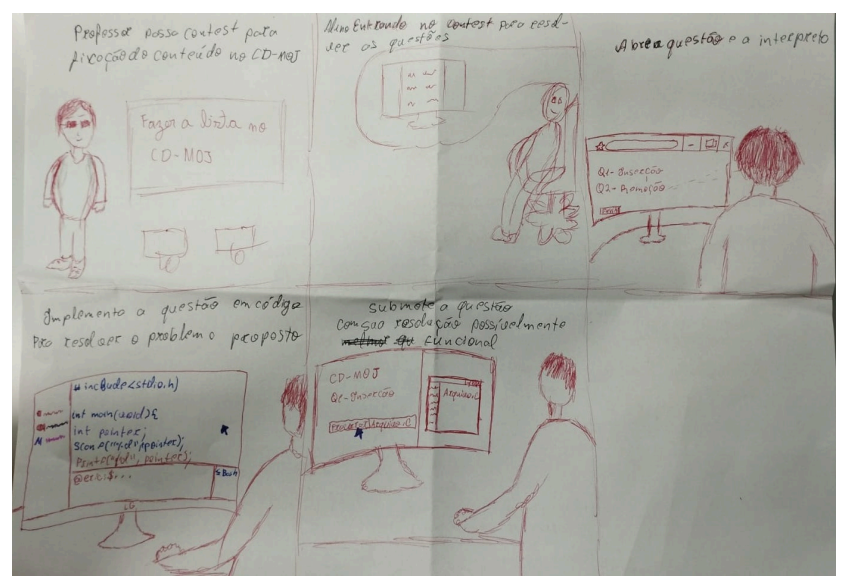 Professor passa contest para
fixação do conteúdo no CD-MOJ
Fazer a lista no
CD-MOJ
Aluno Entrando no contest para resol-
ver as questões
Abre a questão e a interpreta
Q1- Inserção
Q2- Remoção
Implementa a questão em código
Pra resolver o problema proposto
# include<stdio.h)
int main(void){
int pointer;
Scanf("%d", pointer);
Printf("%d", pointer);
$ Bash
LG
Submete a questão
com sua resolução possivelmente
funcional
CD-MOJ
Q1- Inserção
Arquivo.C